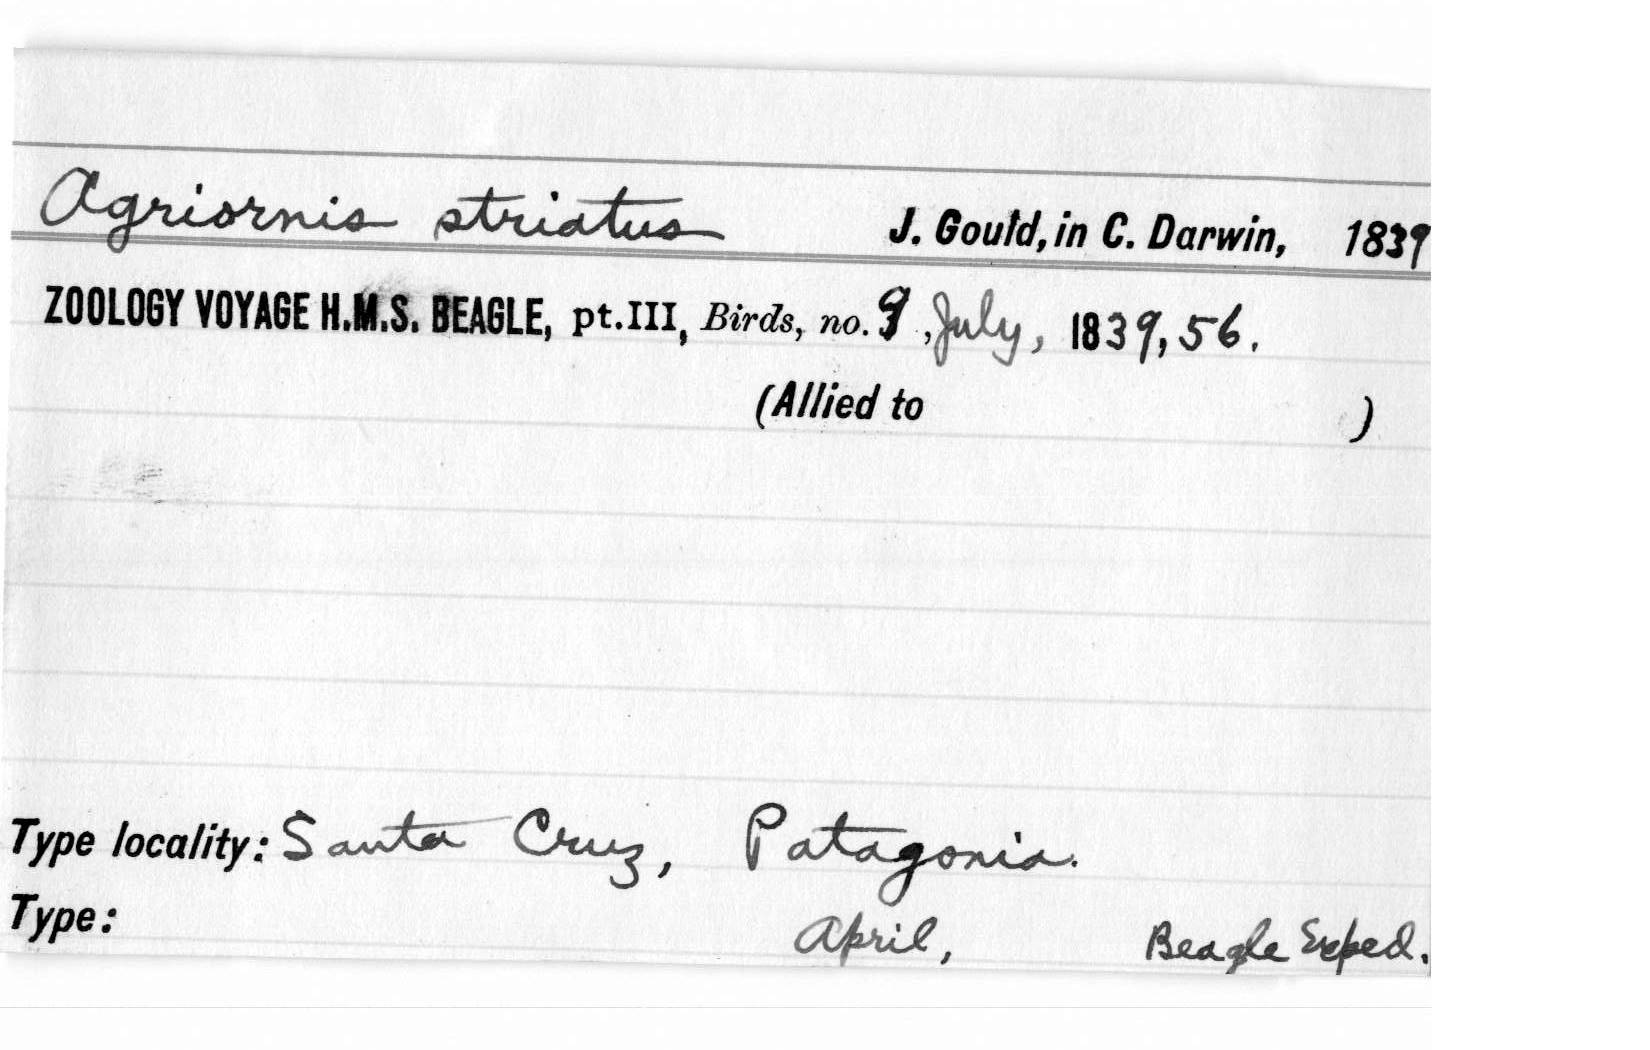 Agriornis striatus J. Gould, in C. Darwin, 1839
ZOOLOGY VOYAGE H.M.S. BEAGLE, pt.III, Birds, no. 9, July, 1839, 56.
(Allied to )
Type locality: Santa Cruz, Patagonia.
Type: April, Beagle Exped.